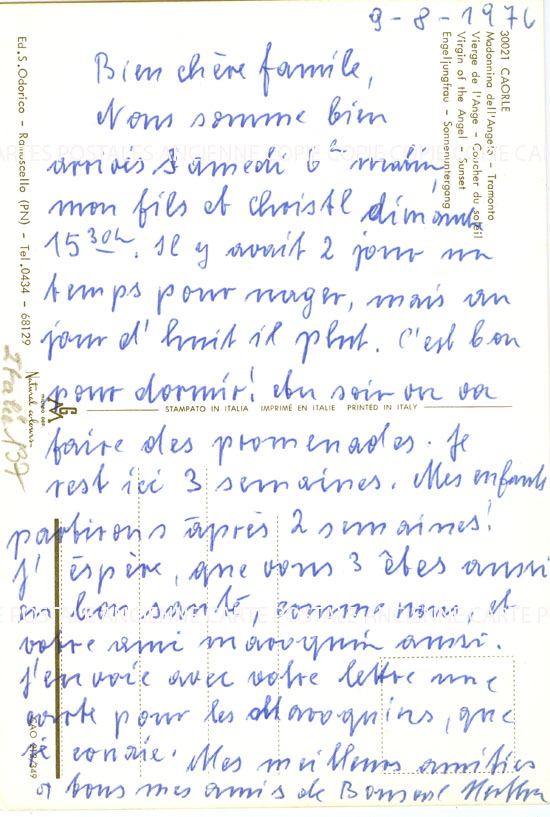 9-8-1976
Bien chère famile,
Nous somme bien
arrivés samedi 6h matin,
mon fils et Christl dimanche
15 30h. Il y avait 2 jour un
temps pour nager, mais au
jour d'huit il plut. C'est bon
pour dormir! Au soir on va
faire des promenades. Je
rest ici 3 semaines. Mes enfants
partirons àprès 2 semaines!
J'éspère, que vous 3 êtes aussi
en bon santé comme nous, et
votre ami maroquin aussi.
J'envoie avec votre lettre une
carte pour les Maroquins, que
je conaie. Mes meilleurs amities
à tous mes amis de
30021 CAORLE
Madonnina dell'Angelo - Tramonto
Vierge de l'Ange - Coucher du soleil
Virgin of the Angel - Sunset
Engeljungfrau - Sonnenuntergang
Ed. S. Odorico - Ramuscello (PN) - Tel. 0434 - 68129
Italie 137
Natural colours
STAMPATO IN ITALIA IMPRIMÉ EN ITALIE PRINTED IN ITALY
CARTES POSTALES ANCIENNE COPIE
CARTE POSTALE ANCIENNE